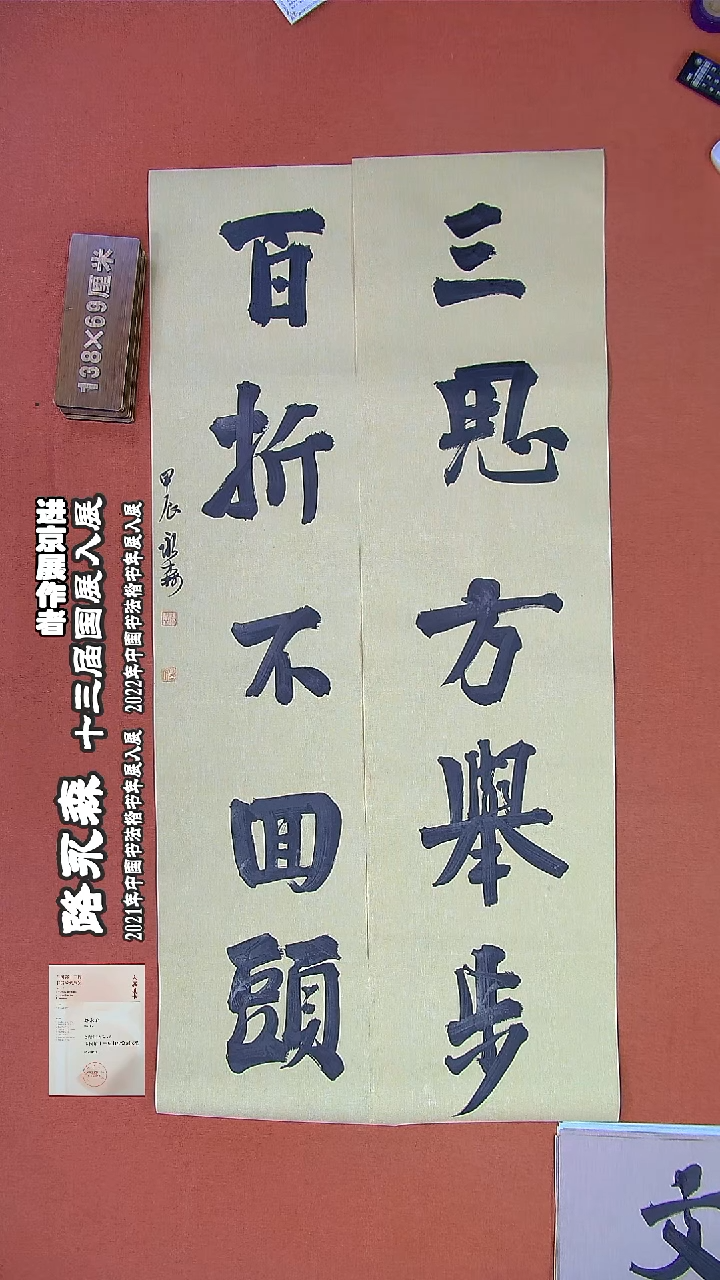 三思方舉步
百折不回頭
甲辰 永森
138×69厘米
路永森 十三届国展入展
2021年中国书法楷书年展入展 2022年中国书法楷书年展入展
文